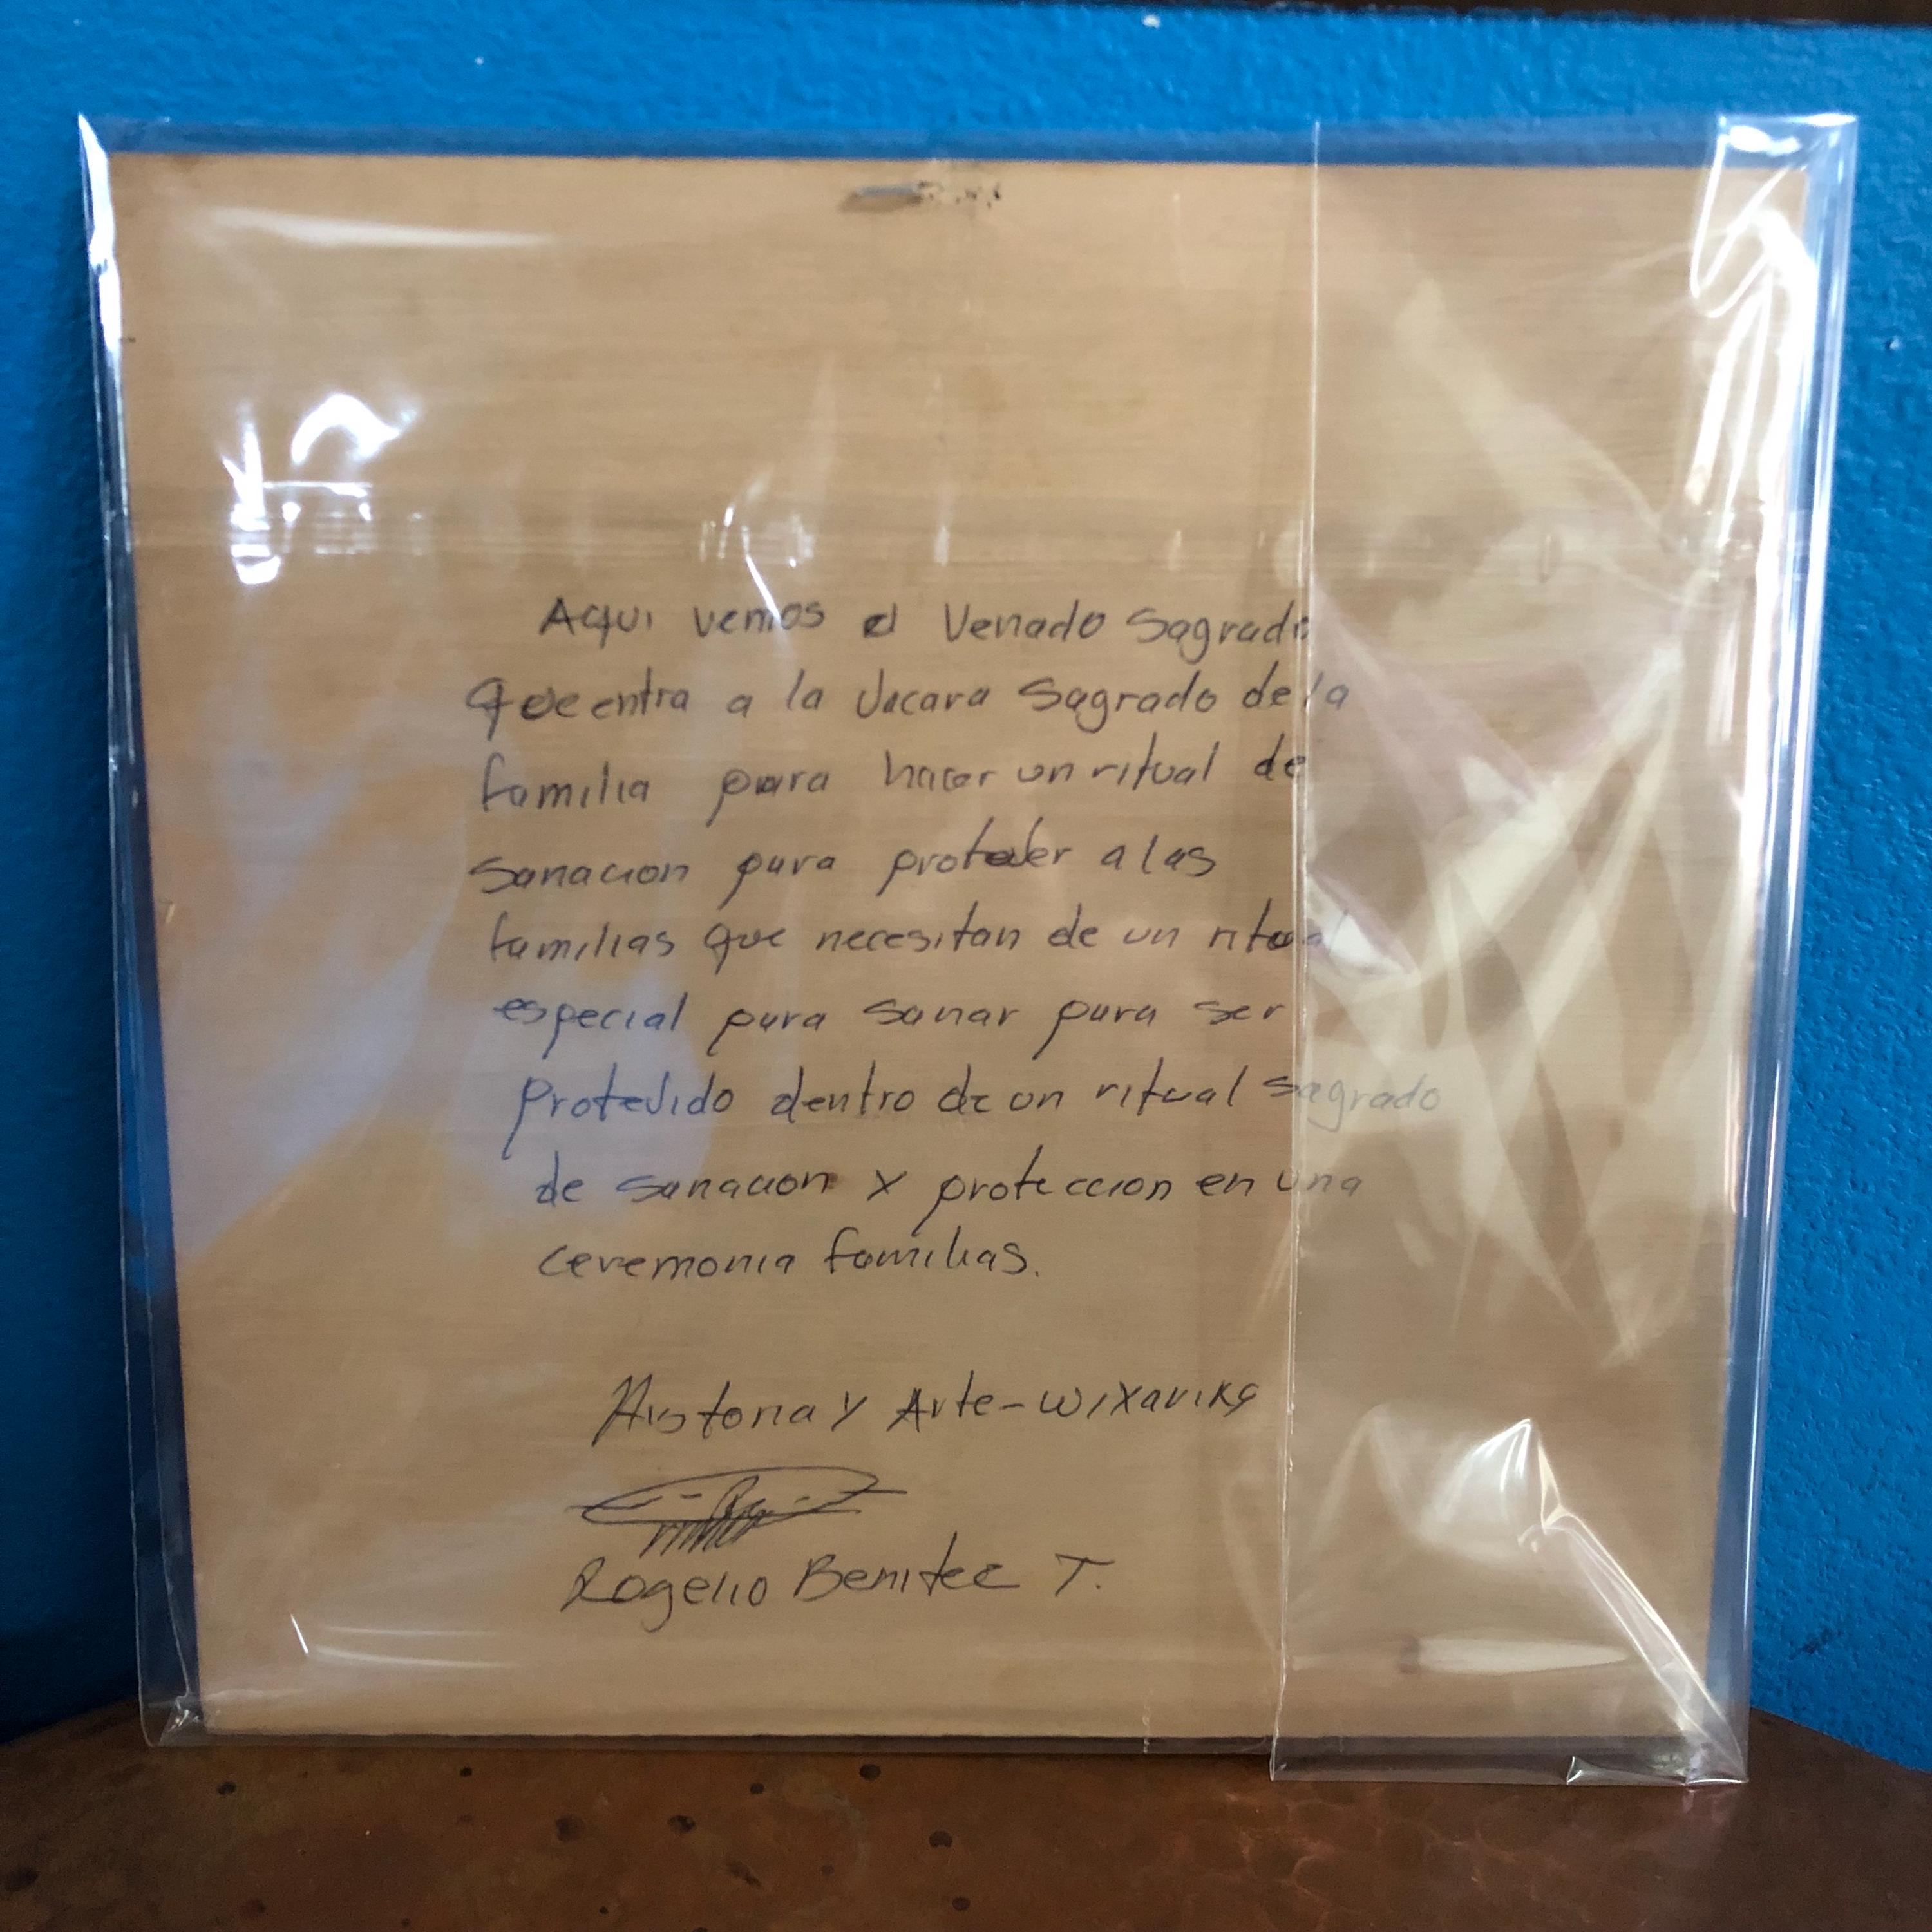 Aqui vemos el Venado Sagrado
Que entra a la Jicara Sagrado de la
familia para hacer un ritual de
sanacion para proteger a las
familias que necesitan de un ritual
especial para sanar para ser
protejido dentro de un ritual sagrado
de sanacion y proteccion en una
ceremonia familias.
Historia y Arte-wixarika
Rogelio Benitez T.